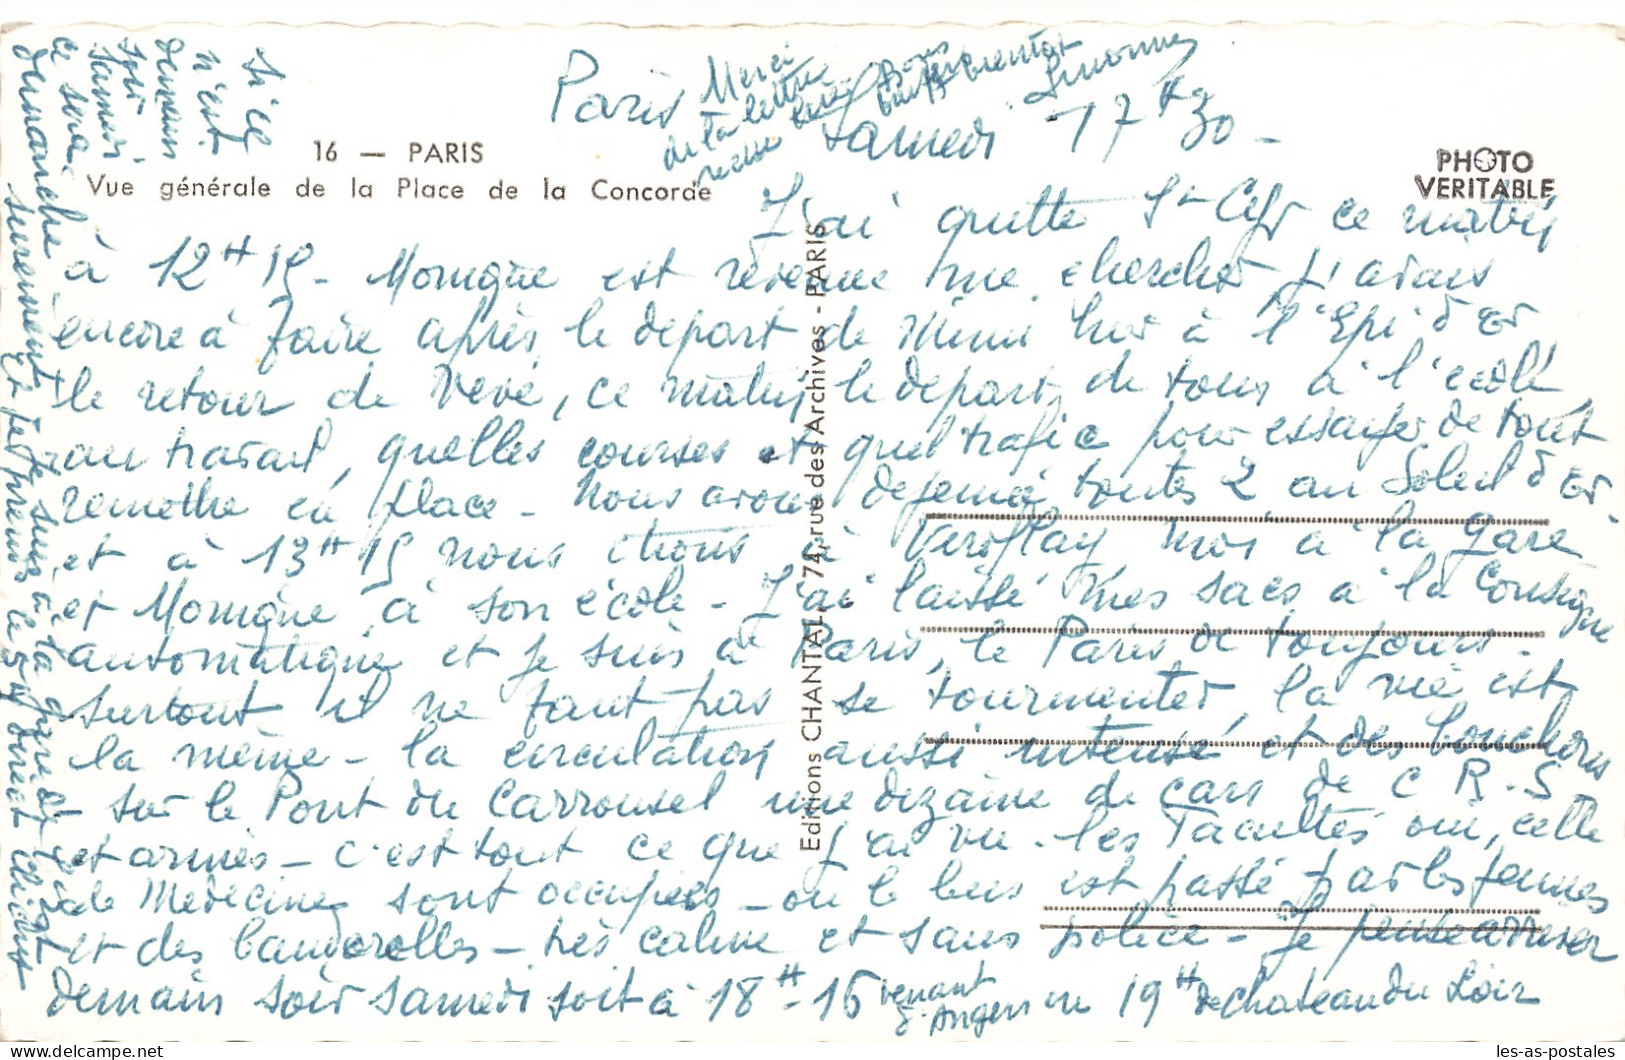 Paris Samedi 17H30 -
Merci
de ta lettre
reçue
16 — PARIS
Vue générale de la Place de la Concorde
PHOTO
VERITABLE
J'ai quitté St Cyr ce matin
à 12H15 - Monique est revenue me chercher j'avais
encore à faire après le départ de Mimi hier à l'Epi d'Or
le retour de Vévé, ce matin le départ de tous à l'école
au travail, quelles courses et quel trafic pour essayer de tout
remettre en place - Nous avons déjeuné toutes 2 au Soleil d'Or.
et à 13H15 nous étions à Viroflay moi à la gare
et Monique à son école - J'ai laissé mes sacs à la Consigne
automatique et je suis à Paris, le Paris de toujours -
surtout il ne faut pas se tourmenter, la vie est
la même - la circulation aussi intense et des bouchons
sur le Pont du Carrousel une dizaine de cars de C.R.S
et armés - c'est tout ce que j'ai vu - les Facultés oui, celle
de Médecine sont occupées - où le bus est passé par les jeunes
et des banderolles - très calme et sans police - Je pense arriver
demain soir samedi soit à 18H-15 venant
d'Angers ou 19H de Chateau du Loir
si ce
n'est
demain
soir
samedi
ce sera
dimanche
surement
je suis à la gare
je prends le direct
Editions CHANTAL, 74, rue des Archives - PARIS
les-as-postales.com